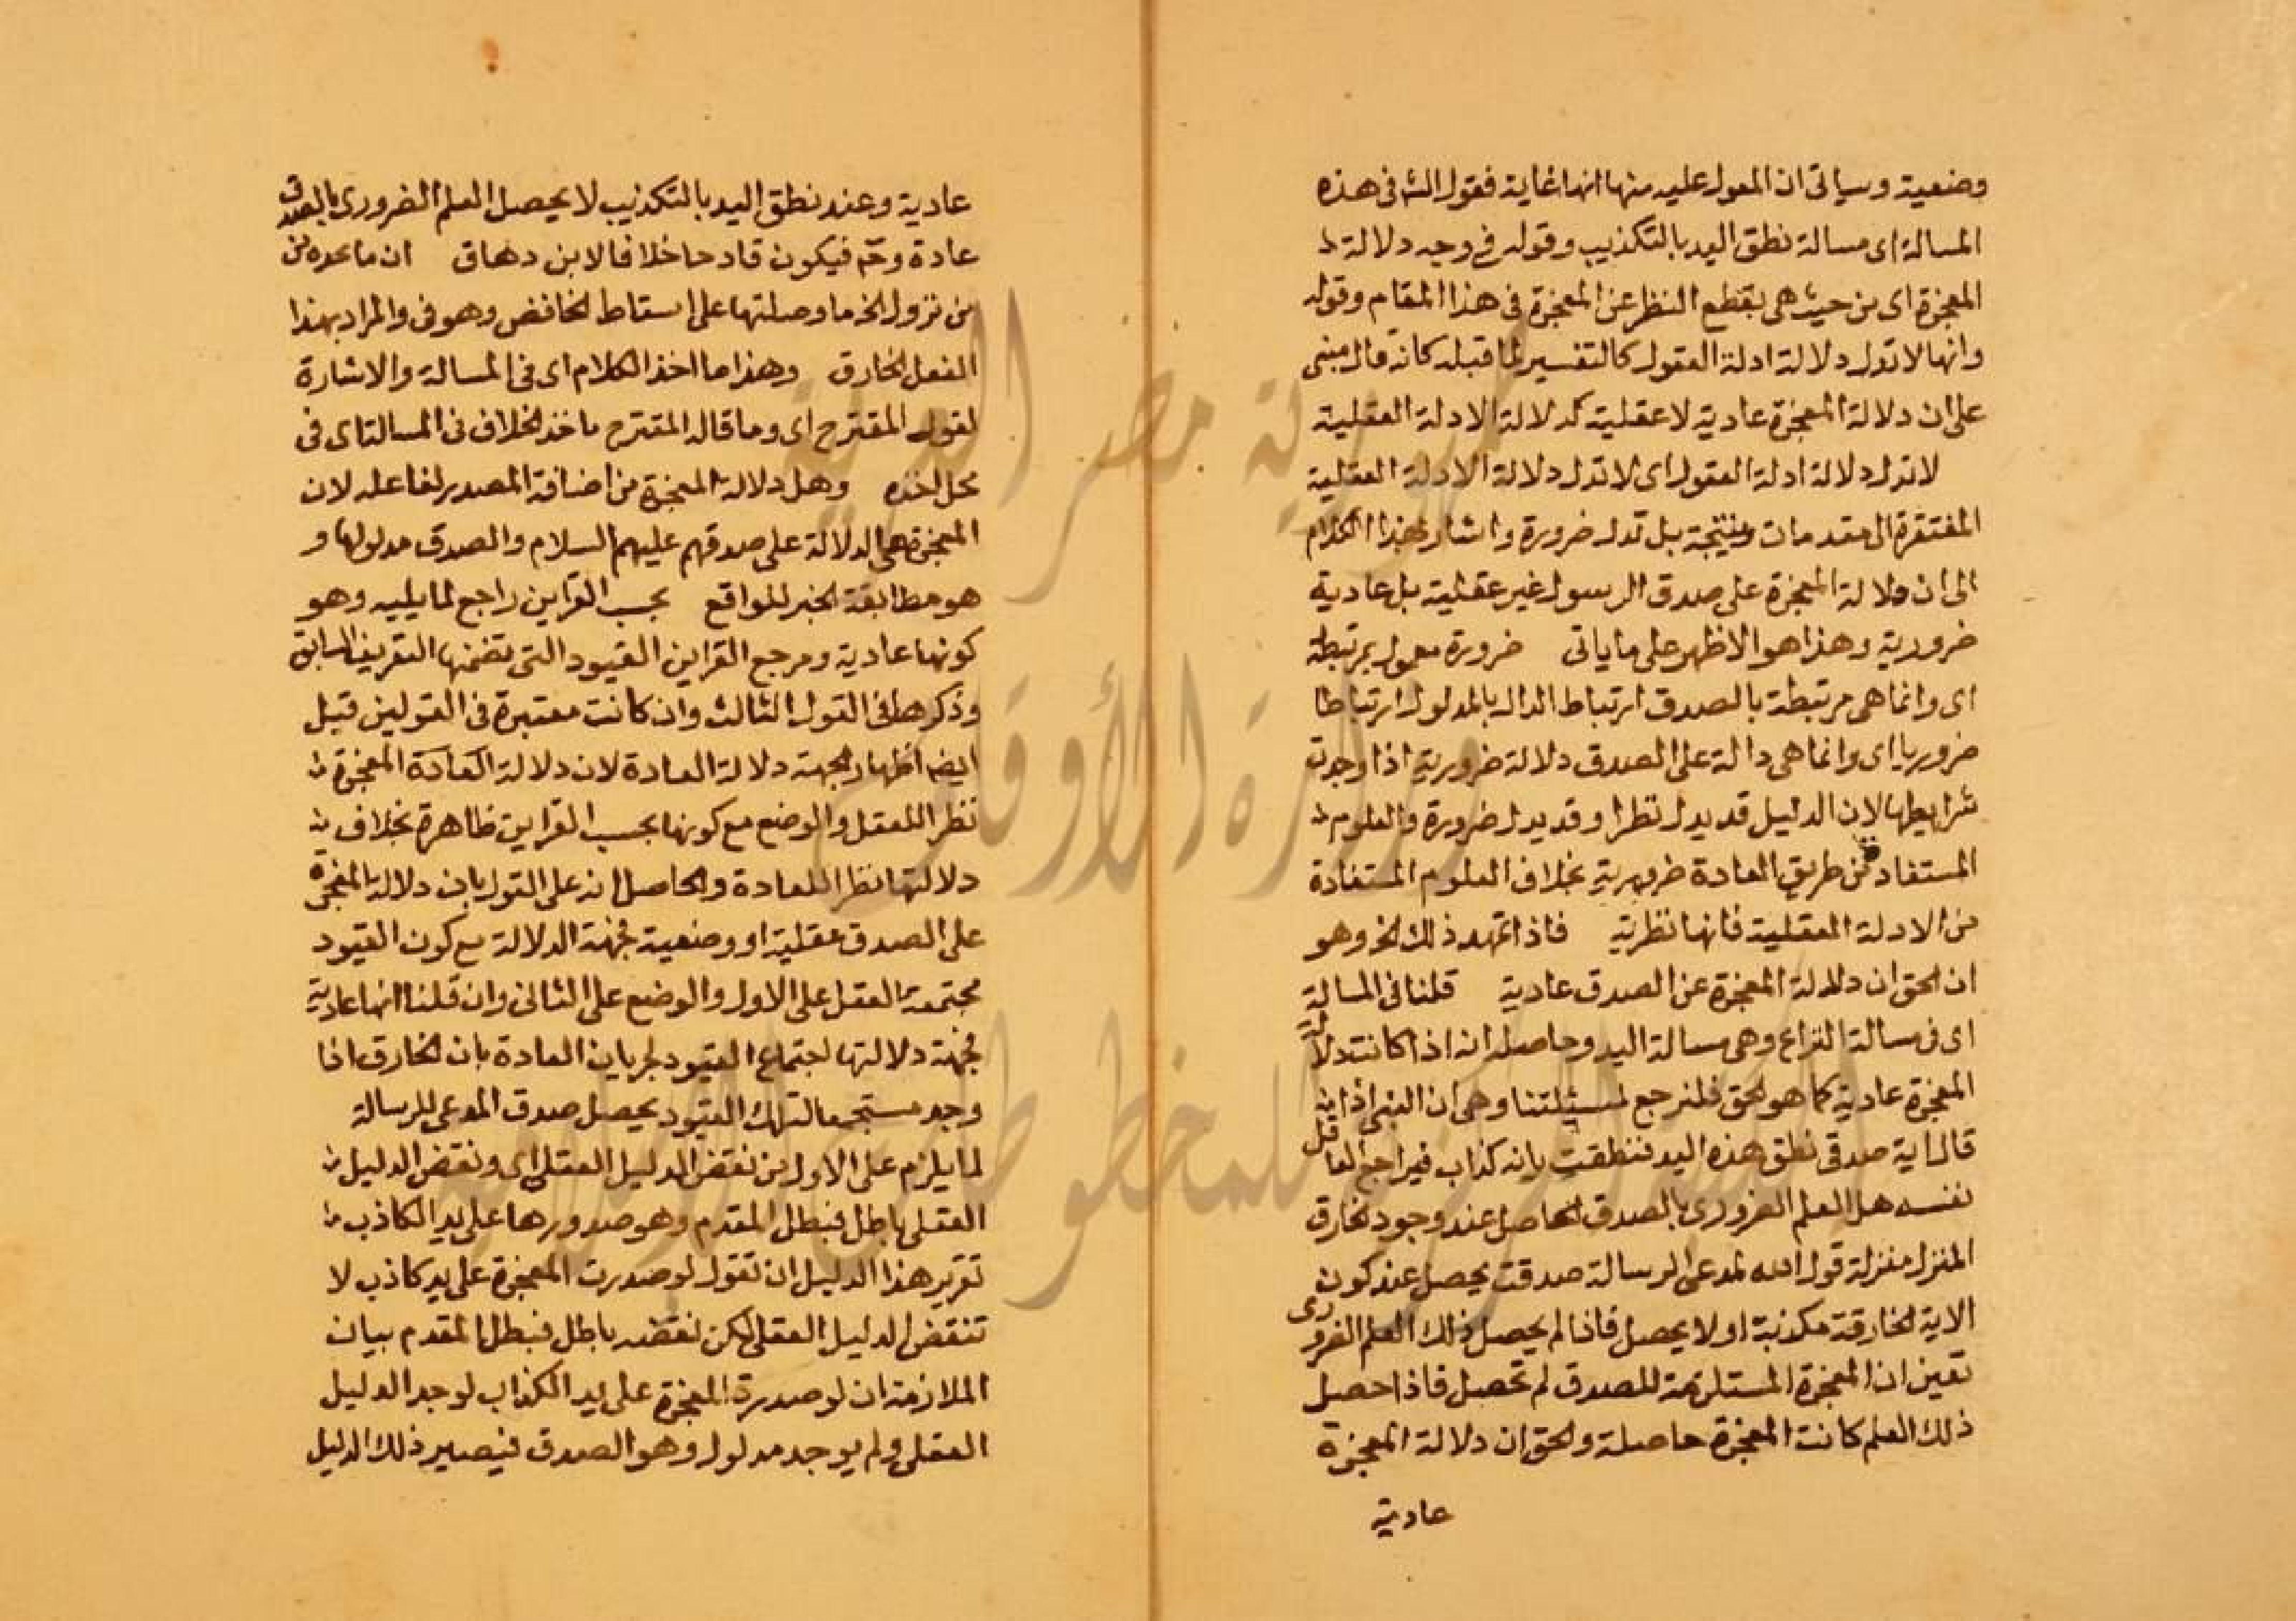 وضعية وسياتى ان المعول عليه منها انها عاية فقول الش فى هذه
المسالة اى مسالة نطق اليد بالتكذيب وقوله فى وجه دلالة
المعجزة اى من حيث هى بقطع النظر عن المعجزة فى هذا المقام وقوله
وانها لا تدل دلالة ادلة العقول كالتفسير لما قبله كانه قال مبنى
على ان دلالة المعجزة عادية لا عقلية كدلالة الادلة العقلية
لا تدل دلالة ادلة العقول اى لا تدل دلالة الادلة العقلية
المفتقرة الى مقدمات ونتيجة بل تدل ضرورة واشار بهذا الكلام
الى ان دلالة المعجزة على صدق الرسول غير عقلية بل عادية
ضرورية وهذا هو الاظهر على ما ياتى ضرورة معمول بمرتبطة
اى وانما هى مرتبطة بالصدق ارتباط الدال بالمدلول ارتباطا
ضروريا اى وانما هى دالة على الصدق دلالة ضرورية اذا وجدت
شرايطها لان الدليل قد يدل نظرا وقد يدل ضرورة والعلوم
المستفادة من طريق العادة ضرورية بخلاف العلوم المستفادة
من الادلة العقلية فانها نظرية فاذا تمهد ذلك الخ وهو
ان الحق ان دلالة المعجزة عن الصدق عادية قلنا فى المسالة
اى فى مسالة النزاع وهى مسالة اليد وحاصله انه اذا كانت دلالة
المعجزة عادية كما هو الحق فلنرجع لمسئلتنا وهى ان النبى اذا
قال اية صدقى نطق هذه اليد فنطقت بانه كذاب فيراجع العاقل
نفسه هل العلم الضرورى بالصدق الحاصل عند وجود الخارق
المنزل منزلة قول الله لمدعى الرسالة صدقت يحصل عند كون
الاية الخارقة مكذبة او لا يحصل فاذا لم يحصل ذلك العلم الضرورى
تعين ان المعجزة المستلزمة للصدق لم تحصل فاذا حصل
ذلك العلم كانت المعجزة حاصلة والحق ان دلالة المعجزة
عادية
عادية وعند نطق اليد بالتكذيب لا يحصل العلم الضرورى بالصدق
عادة وح فيكون قادحا خلافا لابن دهاق ان ما
من نزول الخ ما وصلتها على اسقاط الخافض وهو فى والمراد بهذا
الفعل الخارق وهذا ما اخذ الكلام اى فى المسالة والاشارة
لقول المقترح اى وما قاله المقترح ماخذ الخلاف فى المسالة اى فى
محل اخذه وهل دلالة المعجزة من اضافة المصدر لفاعله لان
المعجزة هى الدلالة على صدقهم عليهم السلام والصدق مدلولها و
هو مطابقة الخبر للواقع بحسب القراين راجع لما يليه وهو
كونها عادية ومرجع القراين القيود التى تضمنها التعريف السابق
وذكرها فى القول الثالث وان كانت معتبرة فى القولين قبل
ايضا اظهار لجهة دلالة العادة لان دلالة العادة المعجزة
نظرا للعقل والوضع مع كونها بحسب القراين ظاهرة بخلاف
دلالتها نظرا للعادة والحاصل انه على القول بان دلالة المعجزة
على الصدق عقلية او وضعية فجهة الدلالة مع كون القيود
مجتمعة العقل على الاول والوضع على الثانى وان قلنا انها عادية
فجهة دلالتها اجتماع القيود لجريان العادة بان الخارق اذا
وجد مستجمعا لتلك القيود يحصل صدق المدعى للرسالة
لما يلزم على الاول من نقض الدليل العقلى اى ونقض الدليل
العقلى باطل فبطل المقدم وهو صدورها على يد الكاذب
تقرير هذا الدليل ان تقول لو صدرت المعجزة على يد كاذب لا
تنقض الدليل العقلى لكن نقضه باطل فبطل المقدم بيان
الملازمة ان لو صدرة المعجزة على يد الكذاب لوجد الدليل
العقلى ولم يوجد مدلول وهو الصدق فيصير ذلك الدليل